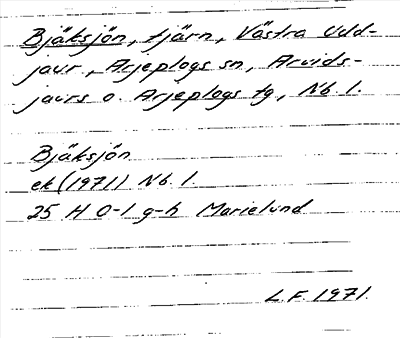 Bjäksjön, tjärn, Västra Udd-
jaur, Arjeplogs sn, Arvids-
jaurs o. Arjeplogs tg, Nb. l.
Bjäksjön
ek (1971) Nb. l.
25 H 0-1 g-h Marielund
L.F. 1971.